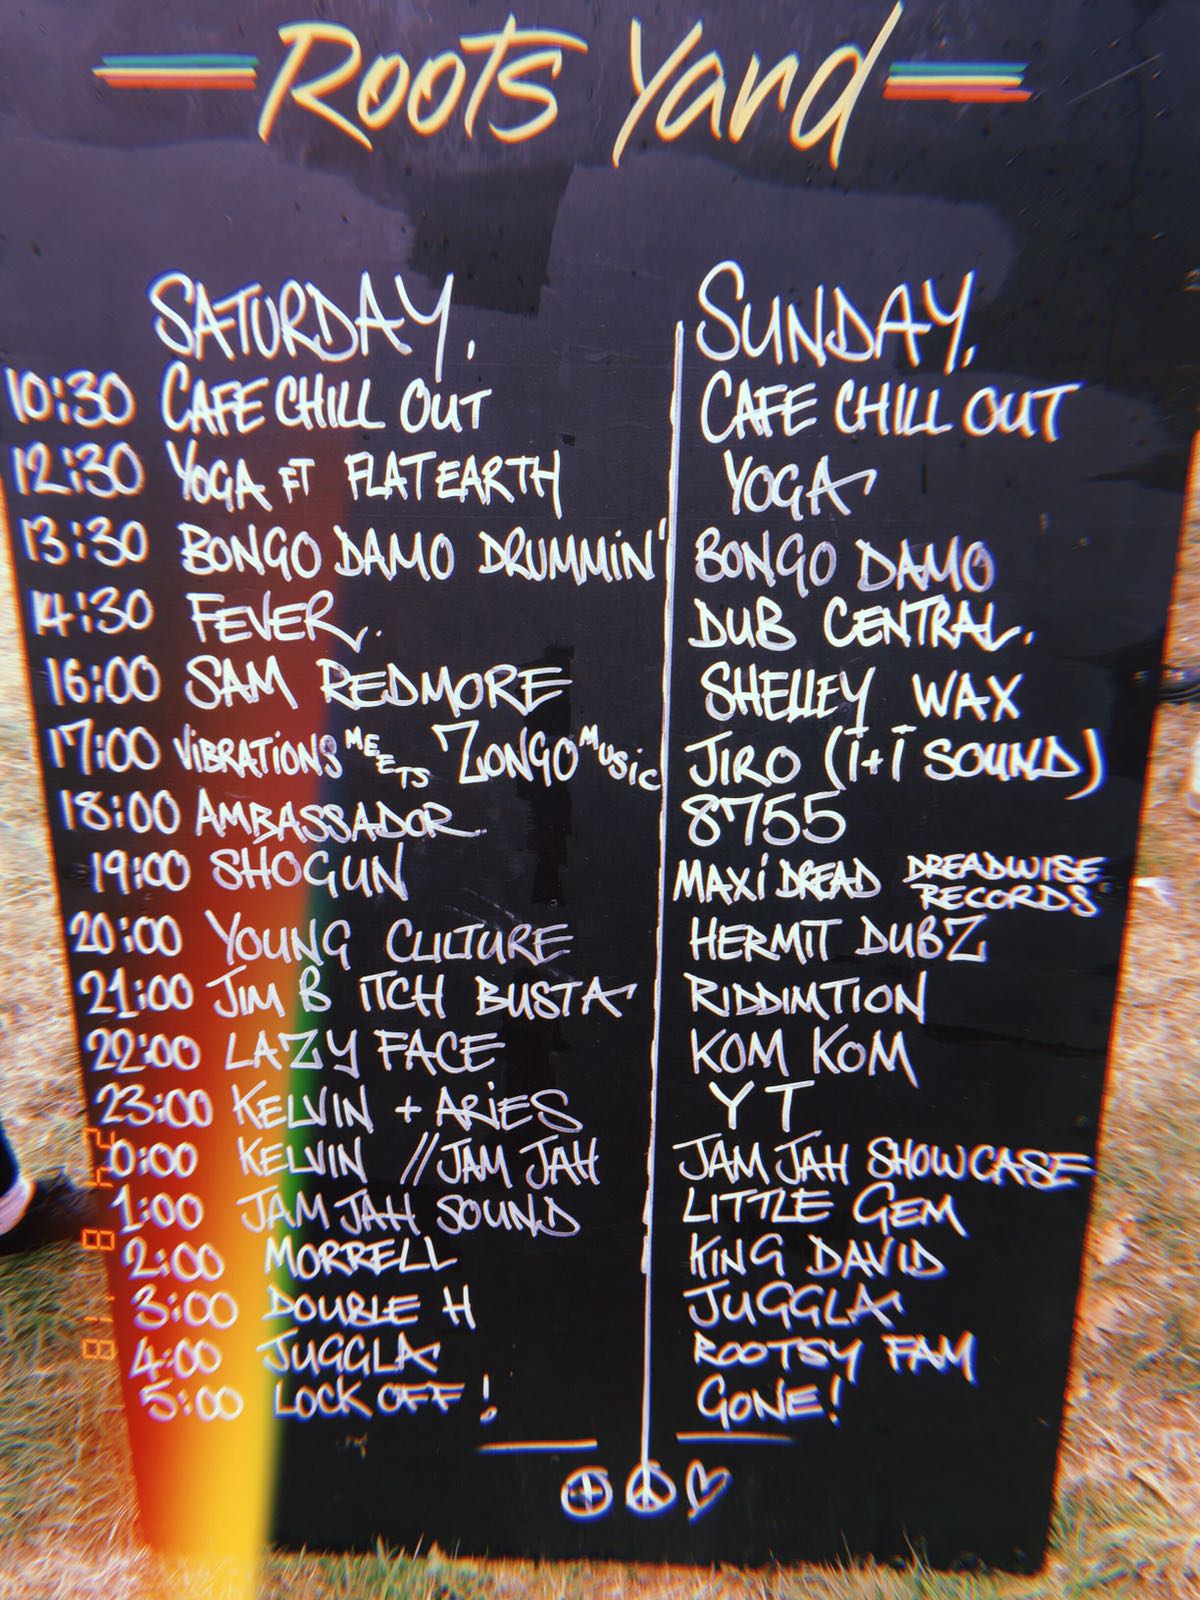 Roots Yard
SATURDAY. SUNDAY.
10:30 CAFE CHILL OUT CAFE CHILL OUT
12:30 YOGA FT FLAT EARTH YOGA
13:30 BONGO DAMO DRUMMIN' BONGO DAMO
14:30 FEVER. DUB CENTRAL.
16:00 SAM REDMORE SHELLEY WAX
17:00 VIBRATIONS MEETS ZONGO MUSIC JIRO (I+I SOUND)
18:00 AMBASSADOR 8755
19:00 SHOGUN MAXI DREAD DREADWISE RECORDS
20:00 YOUNG CULTURE HERMIT DUBZ
21:00 JIM B ITCH BUSTA RIDDIMTION
22:00 LAZY FACE KOM KOM
23:00 KELVIN + ARIES YT
0:00 KELVIN // JAM JAH JAM JAH SHOWCASE
1:00 JAM JAH SOUND LITTLE GEM
2:00 MORRELL KING DAVID
3:00 DOUBLE H JUGGLA
4:00 JUGGLA ROOTSY FAM
5:00 LOCK OFF! GONE!